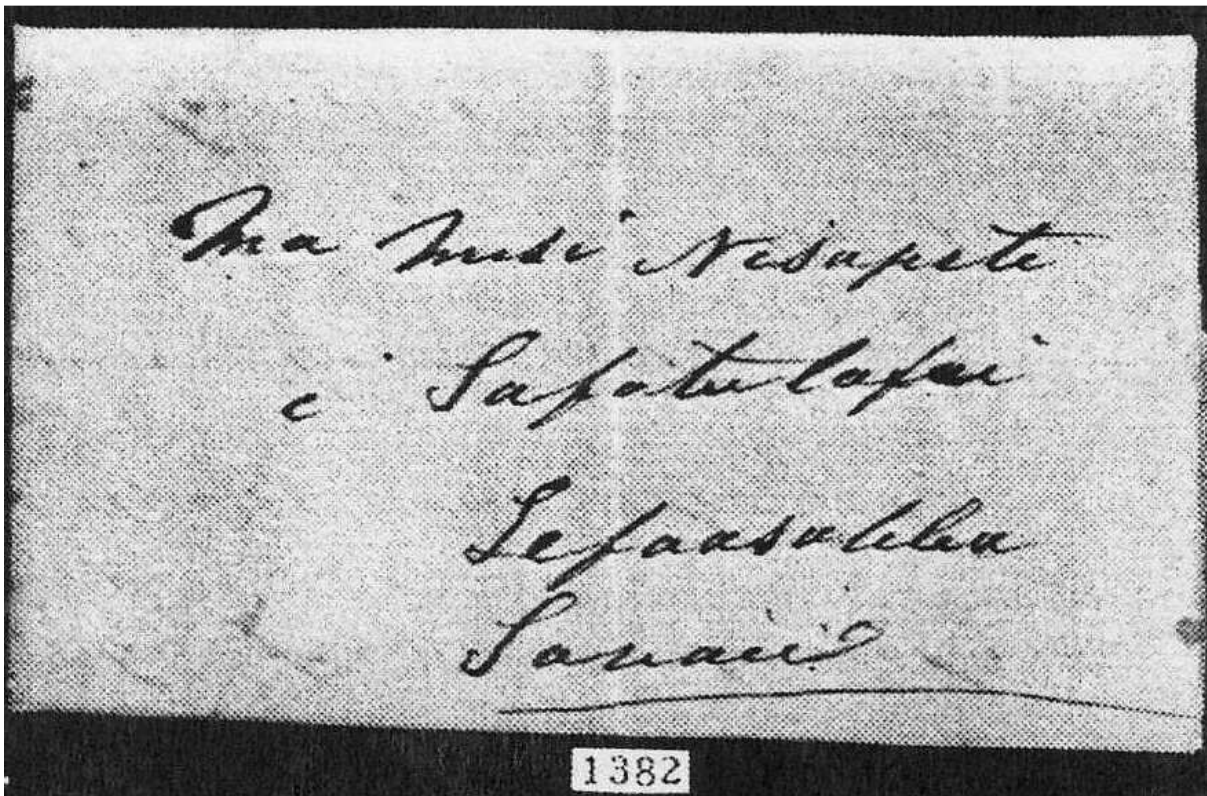 Ma Misi Nisapeti
i Safotulafai
Lefaasaleleu
Savaii
1382